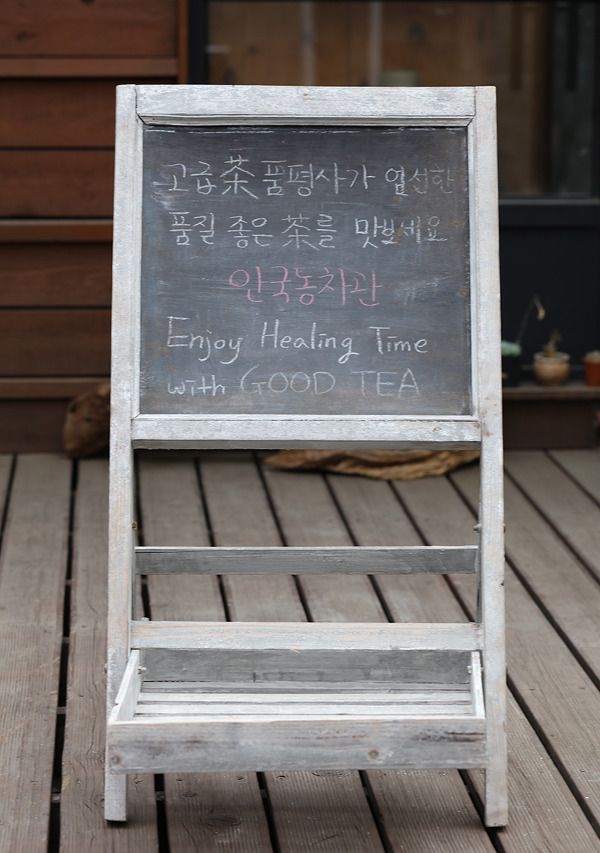 고급茶품평사가 엄선한
품질 좋은 茶를 맛보세요
안국동차관
Enjoy Healing Time
with GOOD TEA